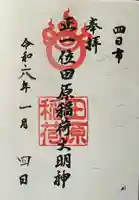 四日市
奉拝
正一位田原稲荷大明神
田原
稲荷
令和六年一月四日